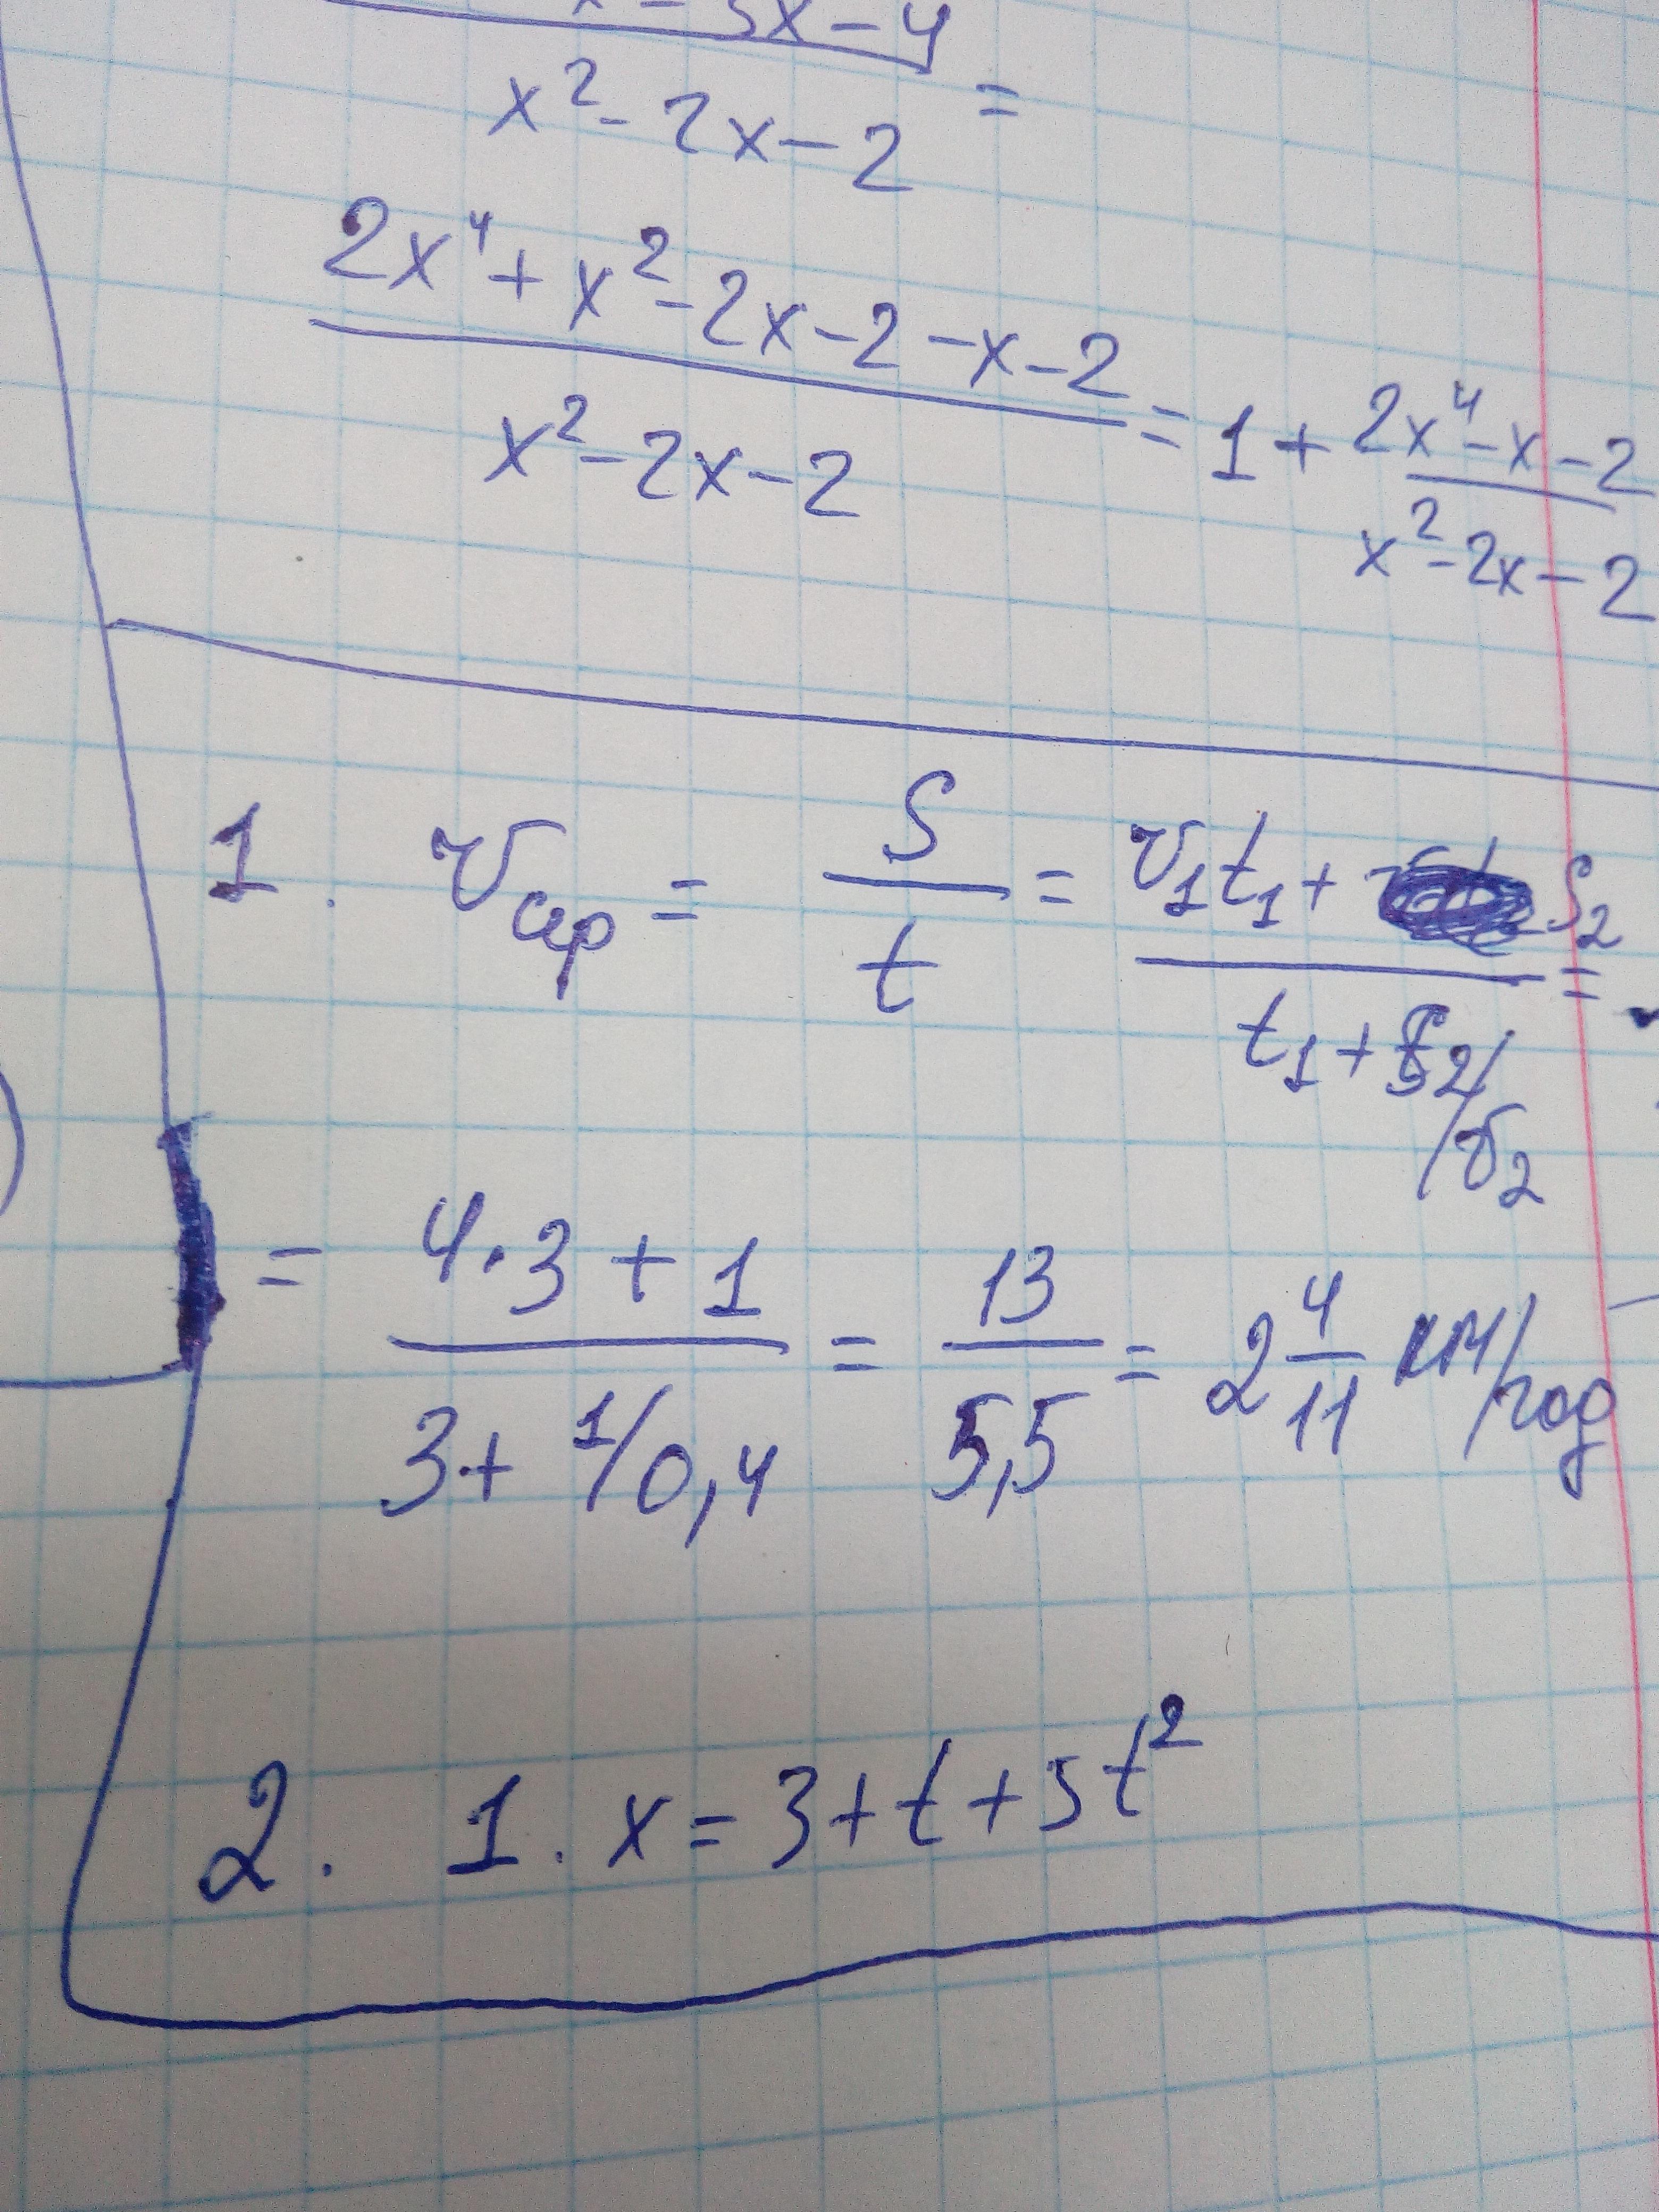 x² - 2x - 2 =
2x⁴ + x² - 2x - 2 - x - 2
x² - 2x - 2
= 1 + 2x⁴ - x - 2
x² - 2x - 2
1. v_cep = S / t = v₁t₁ + S₂ / t₁ + S₂/v₂ =
= 4·3 + 1 / 3 + 1/0,4 = 13 / 5,5 = 2 4/11 км/год
2. 1. x = 3 + t + 5t²